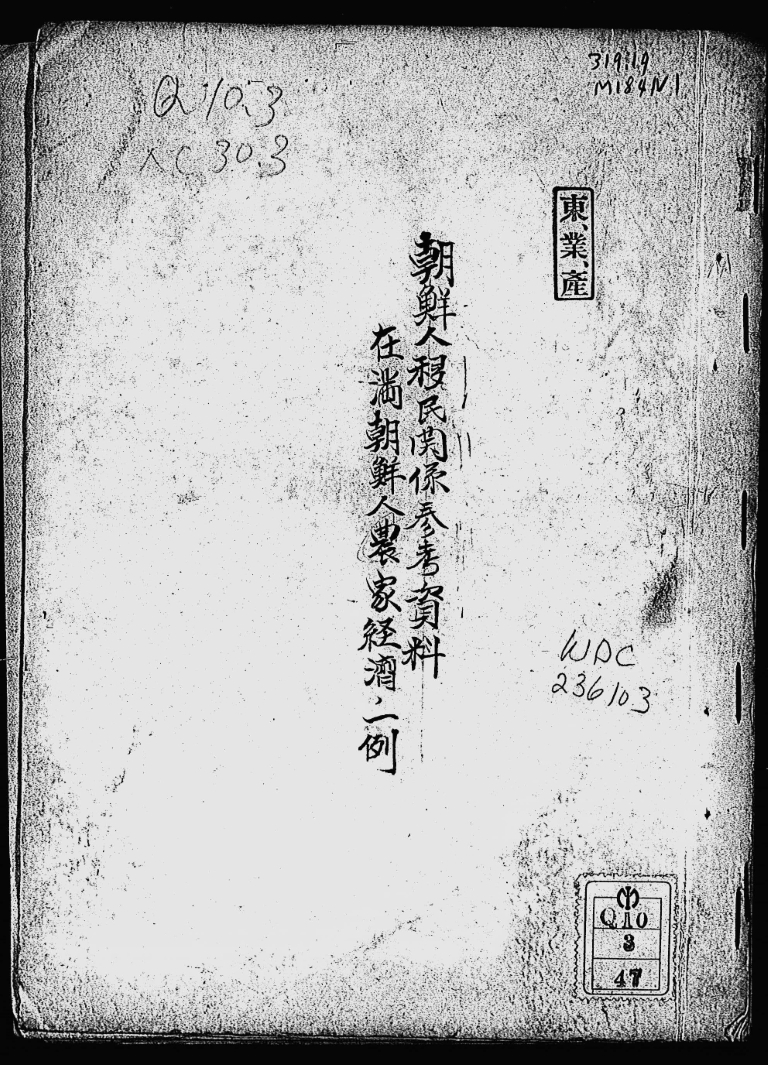 319.19
M184N1
Q10.3
KC 30.3
東、業、產
朝鮮人移民関係参考資料
在満朝鮮人農家経済ノ一例
WDC
236103
Q10
3
47